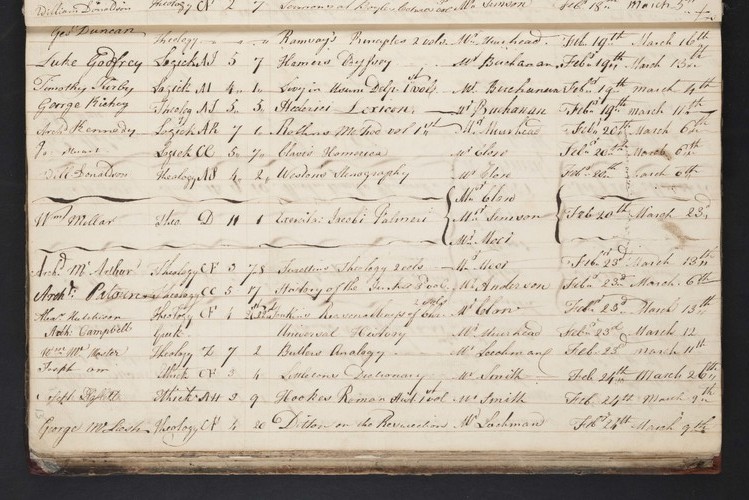 William Donaldson Theology CN 2 7 Febry 18th March 5th
Geo Duncan Theology Ramsay's Principles 2 vols Mr Muirhead Feb. 19th March 16th
Luke Godfrey Logick AI 5 7 Homers Odyssey Mr Buchanan Feb. 19th March 13th
Timothy Logick M 4 10 Livy in Usum Delp. 1st vol. Mr Buchanan Febry 19th march 4th
George Richey Theolog AI 5 5 Hederici Lexicon Mr Buchanan Febry 19th march 11th
Archd Kennedy Logick AR 7 1 Rollins vol 1st Mr Muirhead Febry 20th March 6th
Logick CC 5 7 Clavis Homerica Mr Clow Febry 20th March 6th
Will Donaldson Theology AS 4 2 Westons Stenography Mr Clow Feb. 20th March 6th
Mr Clow
Wm Millar Theo D 11 1 Exercit. Jacobi Palmeri Mr Simson Feb 20th March 23
Mr Moor
Archd Mc Arthur Theology CF 3 7,8 Theology 2 vols Mr Moor Febry 23d March 13th
Archd CC 5 17 History of the Mr Anderson Febry 23d March 6th
Alexr Hutchison Theology CF 1 Jenkins Reasonableness of 2 vols Mr Clow Feb. 23d March 13th
Archd Campbell Greek Universal History Mr Muirhead Feb. 23d March 12
Wm Mc Master Theology Z 7 2 Butlers Analogy Mr Leechman Feb 23d march 11th
Joseph Ethick CF 3 4 Dictionary Mr Smith Feb. 24th March 26th
Joseph Ethick AH 3 9 Hookes Roman Hist. 1st vol Mr Smith Feb. 24th March 9th
George McIntosh Theology CF 4 20 Ditton on the Resurrection Mr Leechman Feb. 24th March 9th